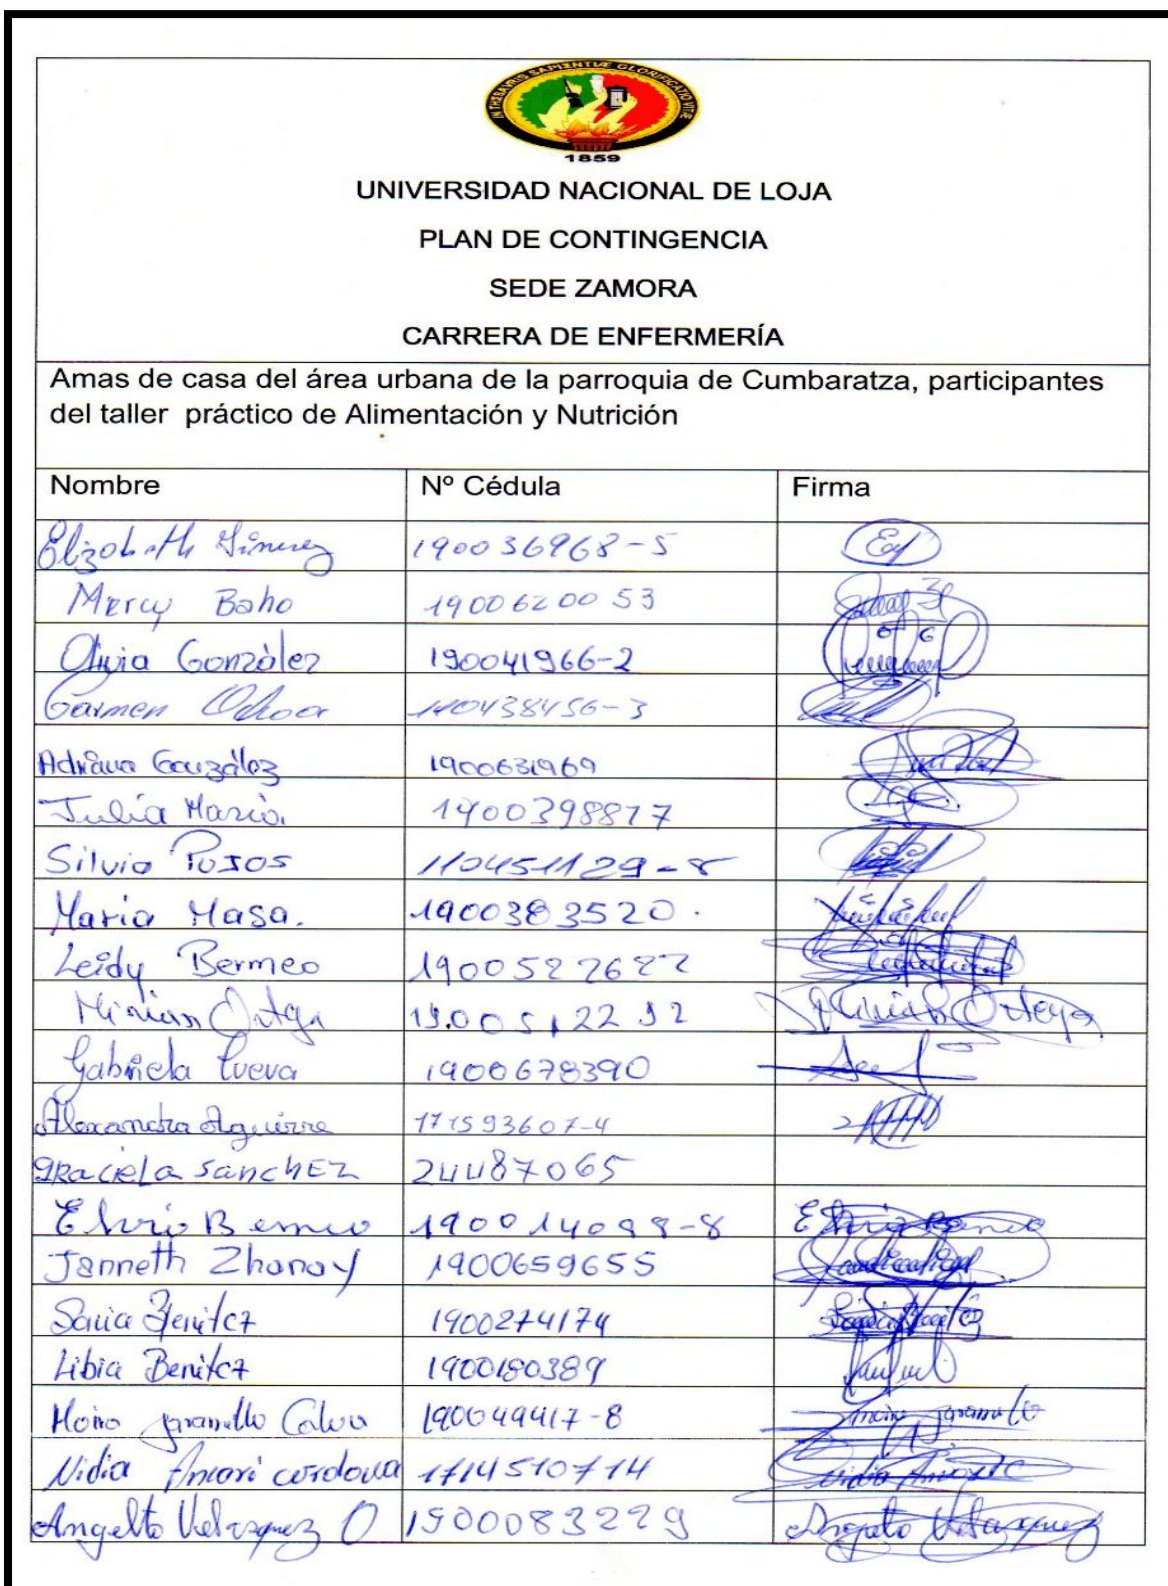 IN THESAURIS SAPIENTIAE GLORIFICATIO VITAE
1859
UNIVERSIDAD NACIONAL DE LOJA
PLAN DE CONTINGENCIA
SEDE ZAMORA
CARRERA DE ENFERMERÍA
Amas de casa del área urbana de la parroquia de Cumbaratza, participantes
del taller práctico de Alimentación y Nutrición
Nombre Nº Cédula Firma
Elizabeth 190036968-5
Mercy 1900620053
Olivia González 190041966-2
Carmen Ochoa 110438456-3
Adriana González 1900631969
Julia Maria. 1900398817
Silvia Pozos 110451129-8
Maria Masa. 1900383520.
Leidy Bermeo
Mirian Ortega Mirian Ortega
Gabriela Cueva 1900678390
Alexandra Aguirre 171593607-4
Graciela Sanchez 24487065
Janneth Zhanay 1900659655
Benitez 1900274174
Libia Benitez 1900180389
Jaramillo 190049417-8
Nidia cordova 1714510714
Angelito Velasquez O 1900083229 Angelito Velasquez